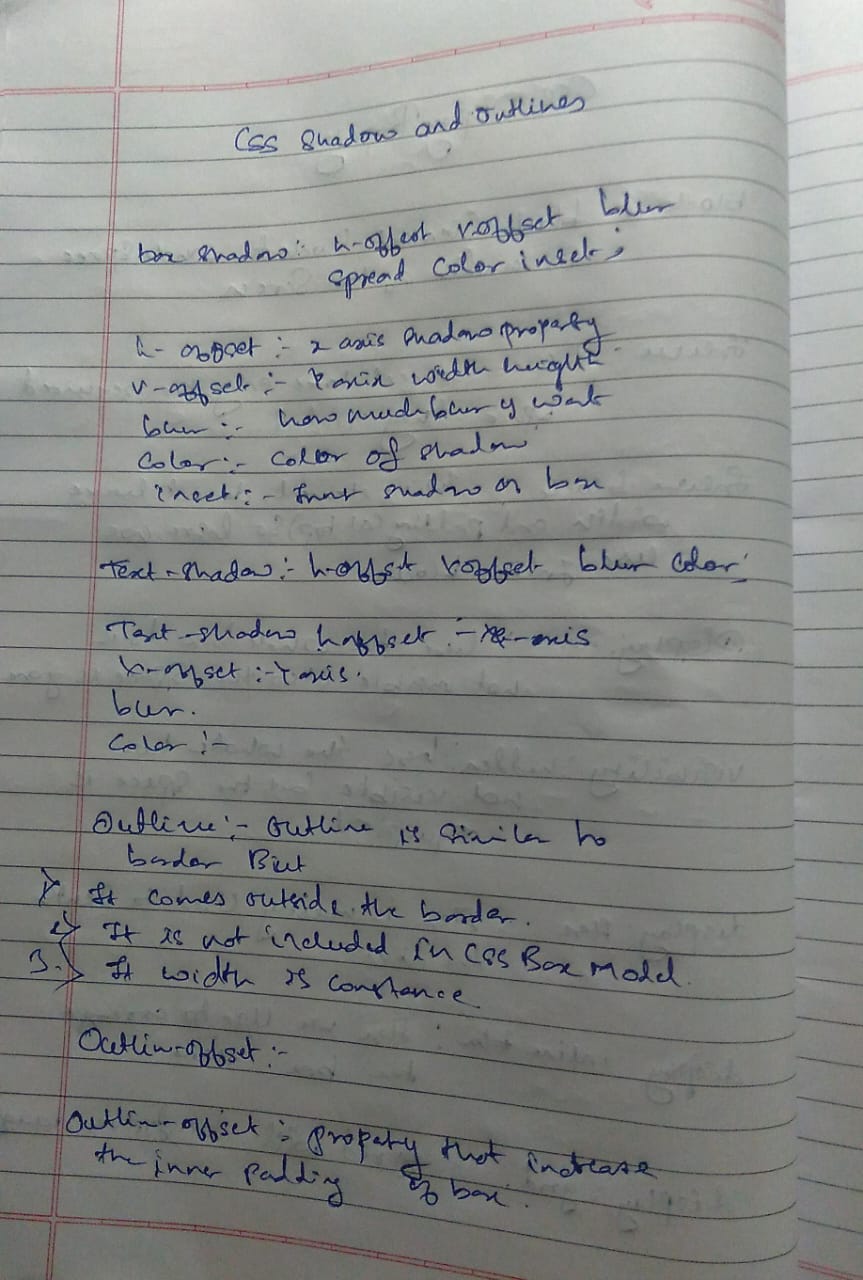 CSS Shadow and Outlines
box shadow:- h-offest v.offset blur
Spread Color inset ;
h- offset :- x axis shadow property
v-offset :- Y axis width height
blur :- how much blur y want
Color :- Color of shadow
inset :- Innr shadow on box
Text-shadow :- h-offst v.offset blur Color;
Text-shadow h offset :- x-axis
v-offset :- Y axis.
blur.
Color :-
Outline :- Outline is Similar to
border But
1> It comes outside the border.
2> It is not included In CSS Box Model.
3.> It width is constance
Outlin-offset :-
Outlin-offset : property that increase
the inner padding of box.